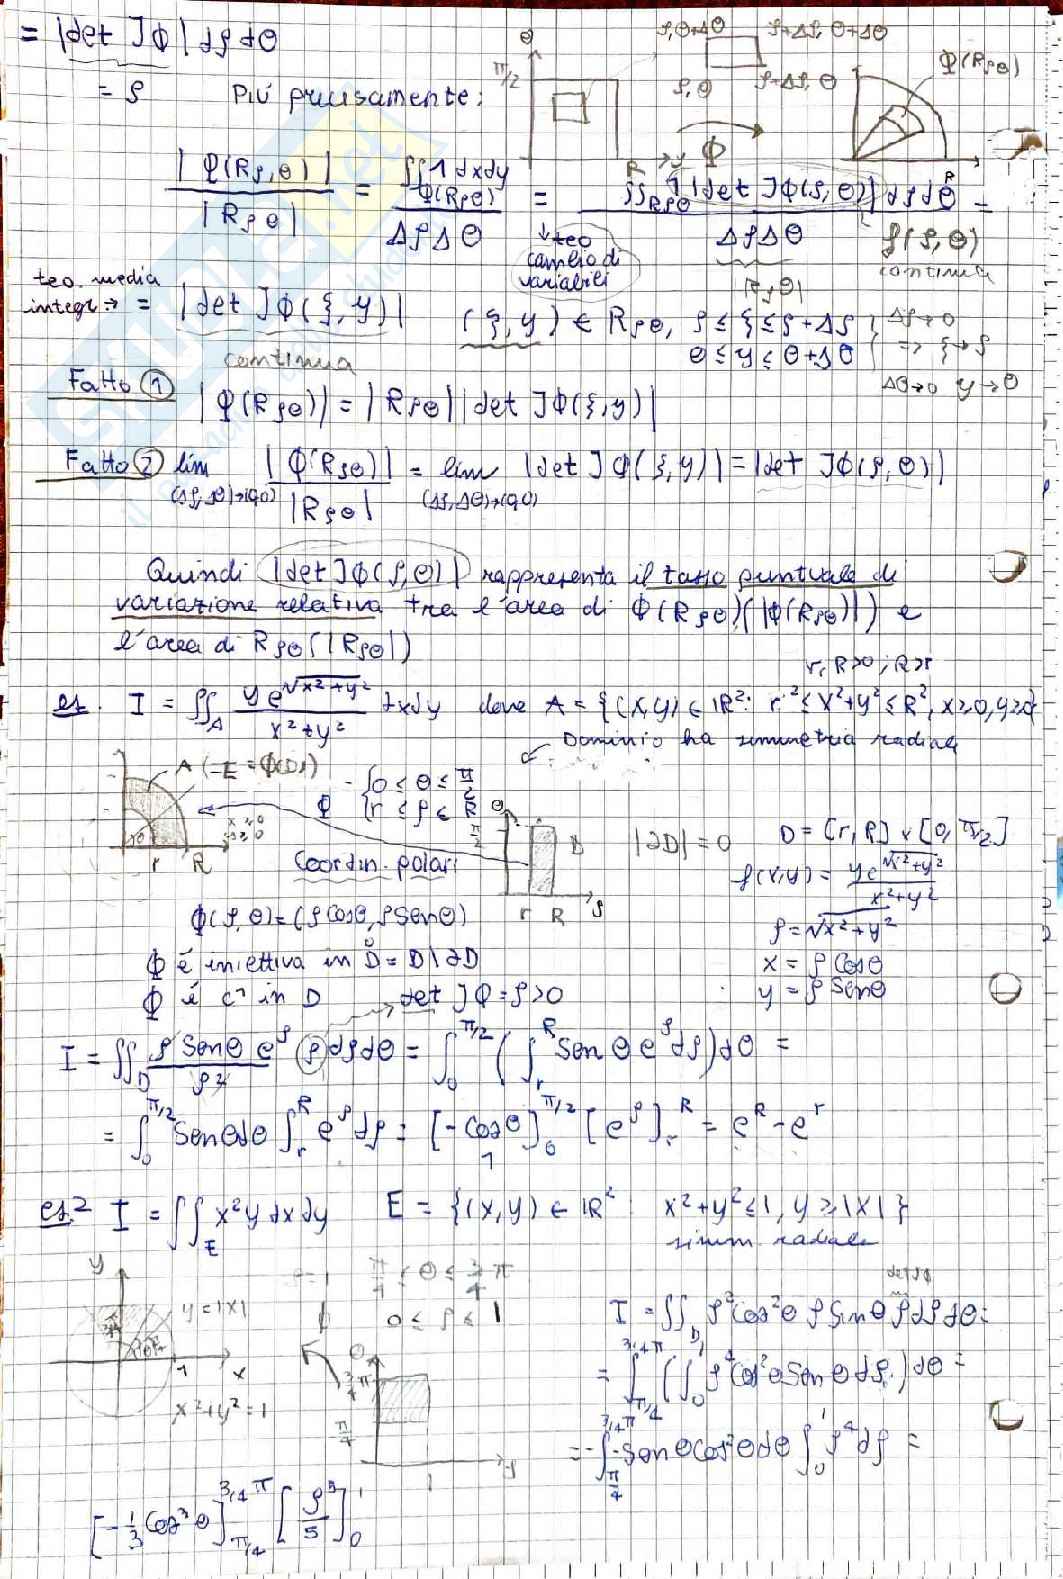 = |det JΦ| dρdθ
= ρ Più precisamente:
θ π/2 ρ,θ+Δθ ρ+Δρ,θ+Δθ
ρ,θ ρ+Δρ,θ Φ(Rρθ)
Φ
|Φ(Rρ,θ)| / |Rρθ| = ∬Φ(Rρθ) 1 dxdy / ΔρΔθ = ∬Rρθ |det JΦ(ρ,θ)| dρdθ / ΔρΔθ =
↓ teo cambio di variabili
|Rρθ|
f(ρ,θ) continua
teo. media integr. → = |det JΦ(ξ,y)| (ξ,y) ∈ Rρθ, ρ ≤ ξ ≤ ρ+Δρ Δρ→0
continua θ ≤ y ≤ θ+Δθ => ξ→ρ
Δθ→0 y→θ
Fatto ① |Φ(Rρθ)| = |Rρθ| |det JΦ(ξ,y)|
Fatto ② lim (Δρ,Δθ)→(0,0) |Φ(Rρθ)| / |Rρθ| = lim (Δρ,Δθ)→(0,0) |det JΦ(ξ,y)| = |det JΦ(ρ,θ)|
Quindi |det JΦ(ρ,θ)| rappresenta il tasso puntuale di
variazione relativa tra l'area di Φ(Rρθ) (|Φ(Rρθ)|) e
l'area di Rρθ (|Rρθ|)
r, R>0; R>r
es. I = ∬A y e^√(x²+y²) / (x²+y²) dxdy dove A = {(x,y) ∈ ℝ²: r² ≤ x²+y² ≤ R², x≥0, y≥0}
Dominio ha simmetria radiale
A (=E = Φ(D))
Φ {0 ≤ θ ≤ π/2
{r ≤ ρ ≤ R
x ≥ 0
y ≥ 0
r R
Coordin. polari
θ π/2 D r R ρ
|∂D| = 0 D = [r,R] x [0,π/2]
f(x,y) = y e^√(x²+y²) / (x²+y²)
Φ(ρ,θ) = (ρcosθ, ρsenθ)
ρ = √(x²+y²)
Φ è iniettiva in D̊ = D\∂D
x = ρ cosθ
Φ è C¹ in D → det JΦ = ρ>0
y = ρ senθ
I = ∬D ρ senθ e^ρ / ρ² ρ dρdθ = ∫₀^π/2 (∫r^R senθ e^ρ dρ) dθ =
= ∫₀^π/2 senθdθ ∫r^R e^ρ dρ = [-cosθ]₀^π/2 [e^ρ]r^R = e^R - e^r
1
es.2 I = ∬E x²y dxdy E = {(x,y) ∈ ℝ² | x²+y² ≤ 1, y ≥ |x|}
simm. radiale
y y = |x|
π/4 ≤ θ ≤ 3/4 π
0 ≤ ρ ≤ 1
1 x
x²+y² = 1
θ 3/4 π π/4 1 ρ
I = ∬D ρ²cos²θ ρ sinθ ρ dρdθ =
= ∫π/4^3/4π (∫₀¹ ρ⁴cos²θ senθ dρ) dθ =
= -∫π/4^3/4π -senθcos²θdθ ∫₀¹ ρ⁴dρ =
[-1/3 cos³θ]π/4^3/4π [ρ⁵/5]₀¹